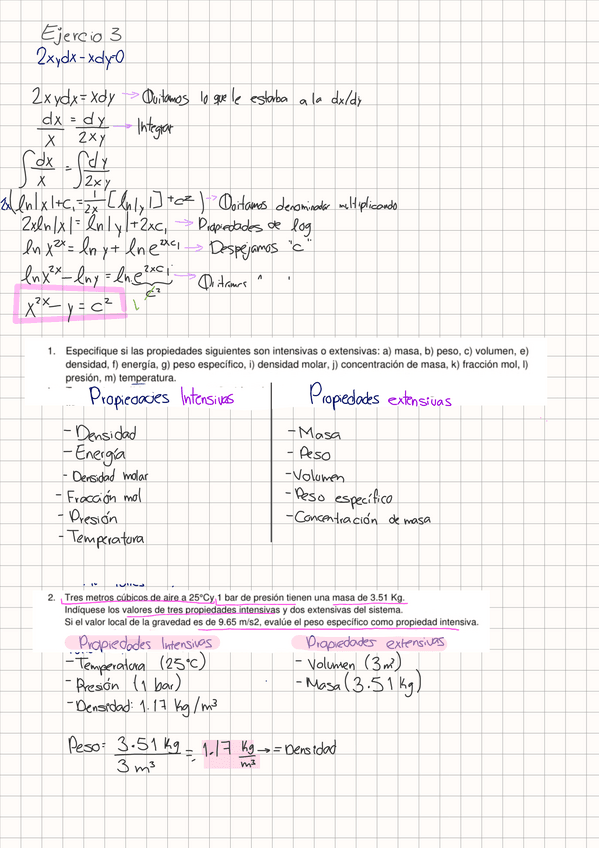 Ejercio 3
2xydx - xdy=0
2xydx = xdy → Quitamos lo que le estorba a la dx/dy
dx/x = dy/2xy → Integrar
∫dx/x = ∫dy/2xy
2x(ln|x|+c₁ = 1/2x [ln|y|] + c²) → Quitamos denominador multiplicando
2xln|x| = ln|y|+2xc₁ → Propiedades de log
ln x²ˣ = ln y + ln e²ˣᶜ¹ → Despejamos "c"
lnx²ˣ - lny = ln e²ˣᶜ¹ → Quitamos " "
c²
x²ˣ - y = c²
1. Especifique si las propiedades siguientes son intensivas o extensivas: a) masa, b) peso, c) volumen, e)
densidad, f) energía, g) peso específico, i) densidad molar, j) concentración de masa, k) fracción mol, l)
presión, m) temperatura.
Propiedades Intensivas
- Densidad
- Energía
- Densidad molar
- Fracción mol
- Presión
- Temperatura
Propiedades extensivas
- Masa
- Peso
- Volumen
- Peso específico
- Concentración de masa
2. Tres metros cúbicos de aire a 25°Cy 1 bar de presión tienen una masa de 3.51 Kg.
Indíquese los valores de tres propiedades intensivas y dos extensivas del sistema.
Si el valor local de la gravedad es de 9.65 m/s2, evalúe el peso especifico como propiedad intensiva.
Propiedades Intensivas
- Temperatura (25°C)
- Presión (1 bar)
- Densidad: 1.17 kg/m³
Propiedades extensivas
- Volumen (3m³)
- Masa (3.51 kg)
Peso: 3.51 kg/3 m³ = 1.17 kg/m³ → = Densidad